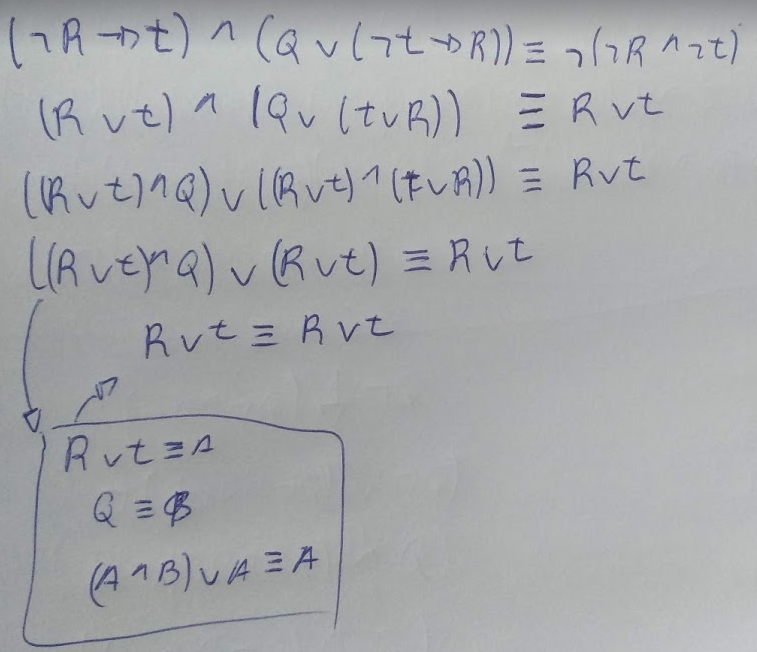 (¬R → t) ∧ (Q ∨ (¬t → R)) ≡ ¬(¬R ∧ ¬t)
(R ∨ t) ∧ (Q ∨ (t ∨ R)) ≡ R ∨ t
((R ∨ t) ∧ Q) ∨ ((R ∨ t) ∧ (t ∨ R)) ≡ R ∨ t
((R ∨ t) ∧ Q) ∨ (R ∨ t) ≡ R ∨ t
R ∨ t ≡ R ∨ t
R ∨ t ≡ A
Q ≡ B
(A ∧ B) ∨ A ≡ A